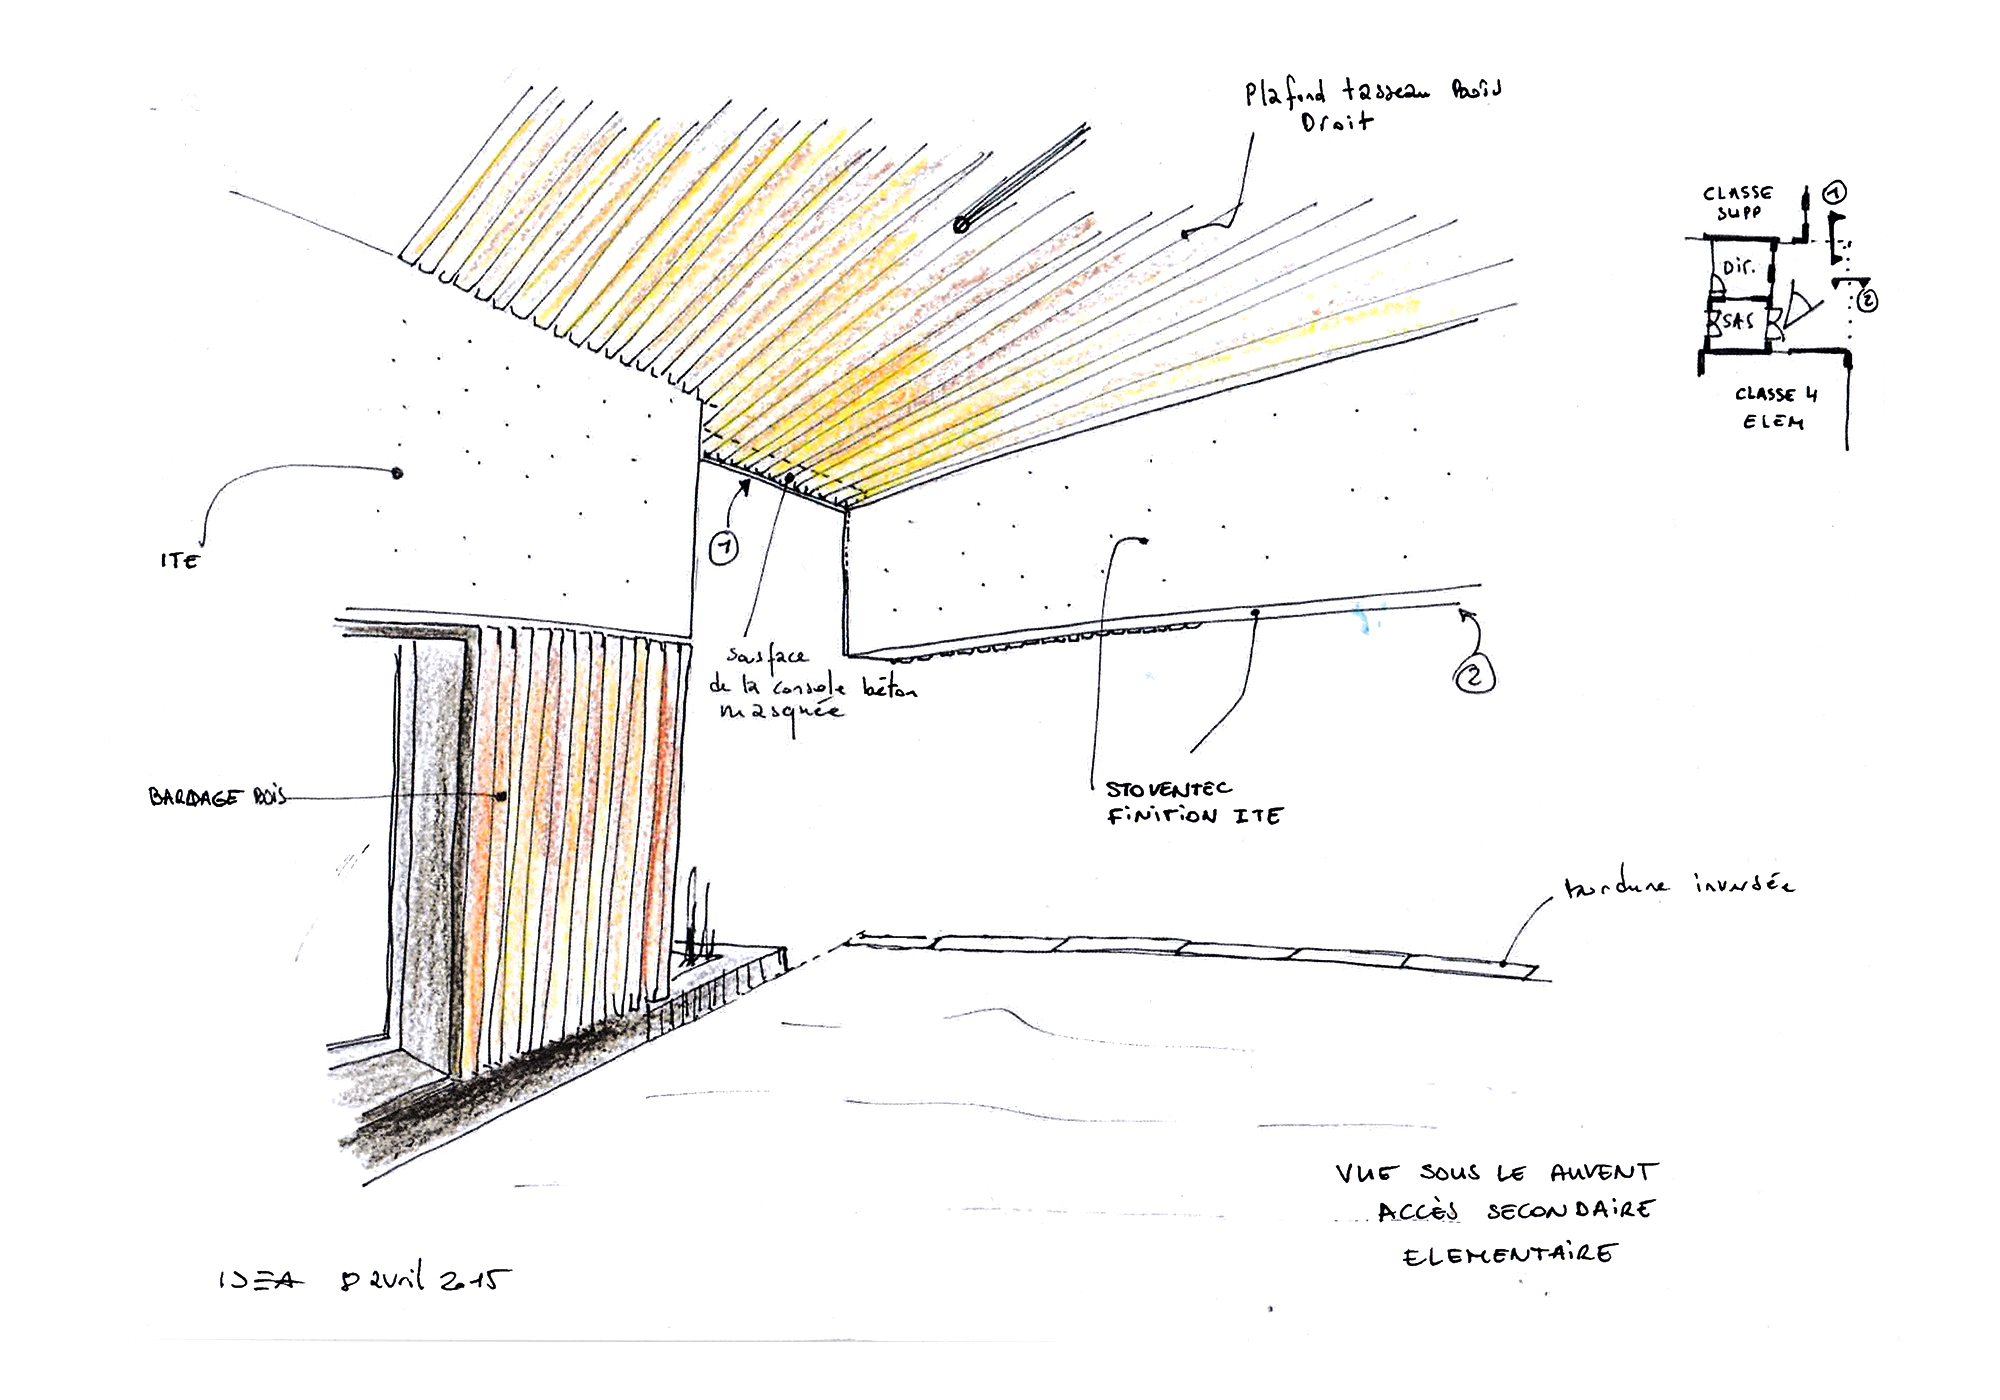 Plafond tasseau Bois
Droit
CLASSE
SUPP
1
Dir.
2
SAS
CLASSE 4
ELEM
ITE
1
sousface
de la console béton
masquée
2
BARDAGE BOIS
STOVENTEC
FINITION ITE
bordure inversée
VUE SOUS LE AUVENT
ACCÈS SECONDAIRE
ELEMENTAIRE
IDEA 8 avril 2015